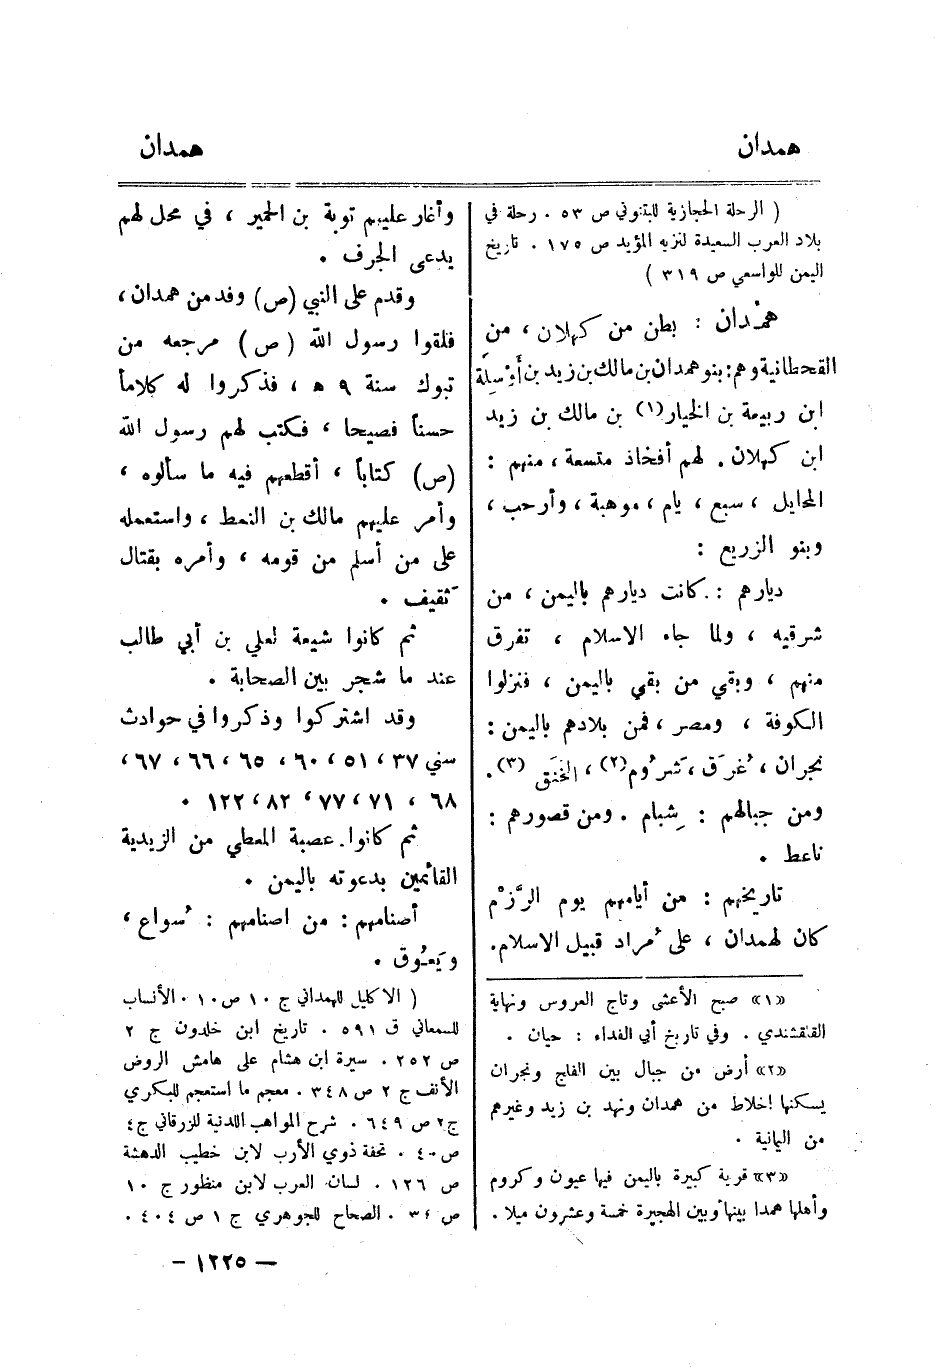 همدان
همدان
( الرحلة الحجازية للبتنوني ص ٥٣ . رحلة في
بلاد العرب السعيدة لنزيه المؤيد ص ١٧٥ . تاريخ
اليمن للواسعي ص ٣١٩ )
همْدان : بطن من كهلان ، من
القحطانية وهم: بنو همدان بن مالك بن زيد بن أَوْسِلَة
ابن ربيعة بن الخيار(١) بن مالك بن زيد
ابن كهلان . لهم أفخاذ متسعة ، منهم :
المحايل ، سبع ، يام ، موهبة ، وأرحب ،
وبنو الزريع :
ديارهم : كانت ديارهم باليمن ، من
شرقيه ، ولما جاء الاسلام ، تفرق
منهم ، وبقي من بقي باليمن ، فنزلوا
الكوفة ، ومصر ، فمن بلادهم باليمن :
نجران ، ُغرَق ، َشرُوم(٢) ، الخَنَق (٣) .
ومن جبالهم : ِشبام . ومن قصورهم :
ناعط .
تاريخهم : من أيامهم يوم الرَّزْم
كان لهمدان ، على ُمراد قبيل الاسلام .
«١» صبح الأعشى وتاج العروس ونهاية
القلقشندي . وفي تاريخ أبي الفداء : حيان .
«٢» أرض من جبال بين الفلج ونجران
يسكنها اخلاط من همدان ونهد بن زيد وغيرهم
من اليمانية .
«٣» قرية كبيرة باليمن فيها عيون وكروم
وأهلها همدا بينها وبين الهجيرة خمسة وعشرون ميلا .
وأغار عليهم توبة بن الحمير ، في محل لهم
يدعى الجرف .
وقدم على النبي (ص) وفد من همدان ،
فلقوا رسول الله (ص) مرجعه من
تبوك سنة ٩ ھ ، فذكروا له كلاماً
حسناً فصيحا ، فكتب لهم رسول الله
(ص) كتاباً ، أقطعهم فيه ما سألوه ،
وأمر عليهم مالك بن النمط ، واستعمله
على من أسلم من قومه ، وأمره بقتال
َثقيف .
ثم كانوا شيعة لعلي بن أبي طالب
عند ما شجر بين الصحابة .
وقد اشتركوا وذكروا في حوادث
سني ٣٧ ، ٥١ ، ٦٠ ، ٦٥ ، ٦٦ ، ٦٧ ،
٦٨ ، ٧١ ، ٧٧ ، ٨٢ ، ١٢٢ .
ثم كانوا عصبة المعطي من الزيدية
القائمين بدعوته باليمن .
أصنامهم : من اصنامهم : ُسواع ،
ويَعُوق .
( الاكليل للهمداني ج ١٠ ص ١٠ . الأنساب
للسمعاني ق ٥٩١ . تاريخ ابن خلدون ج ٢
ص ٢٥٢ . سيرة ابن هشام على هامش الروض
الأنف ج ٢ ص ٣٤٨ . معجم ما استعجم للبكري
ج ٢ ص ٦٤٩ . شرح المواهب اللدنية للزرقاني ج ٤
ص ٤٠ . تحفة ذوي الأرب لابن خطيب الدهشة
ص ١٢٦ . لسان العرب لابن منظور ج ١٠
ص ٣٤ . الصحاح للجوهري ج ١ ص ٤٠٤ .
— ١٢٢٥ —